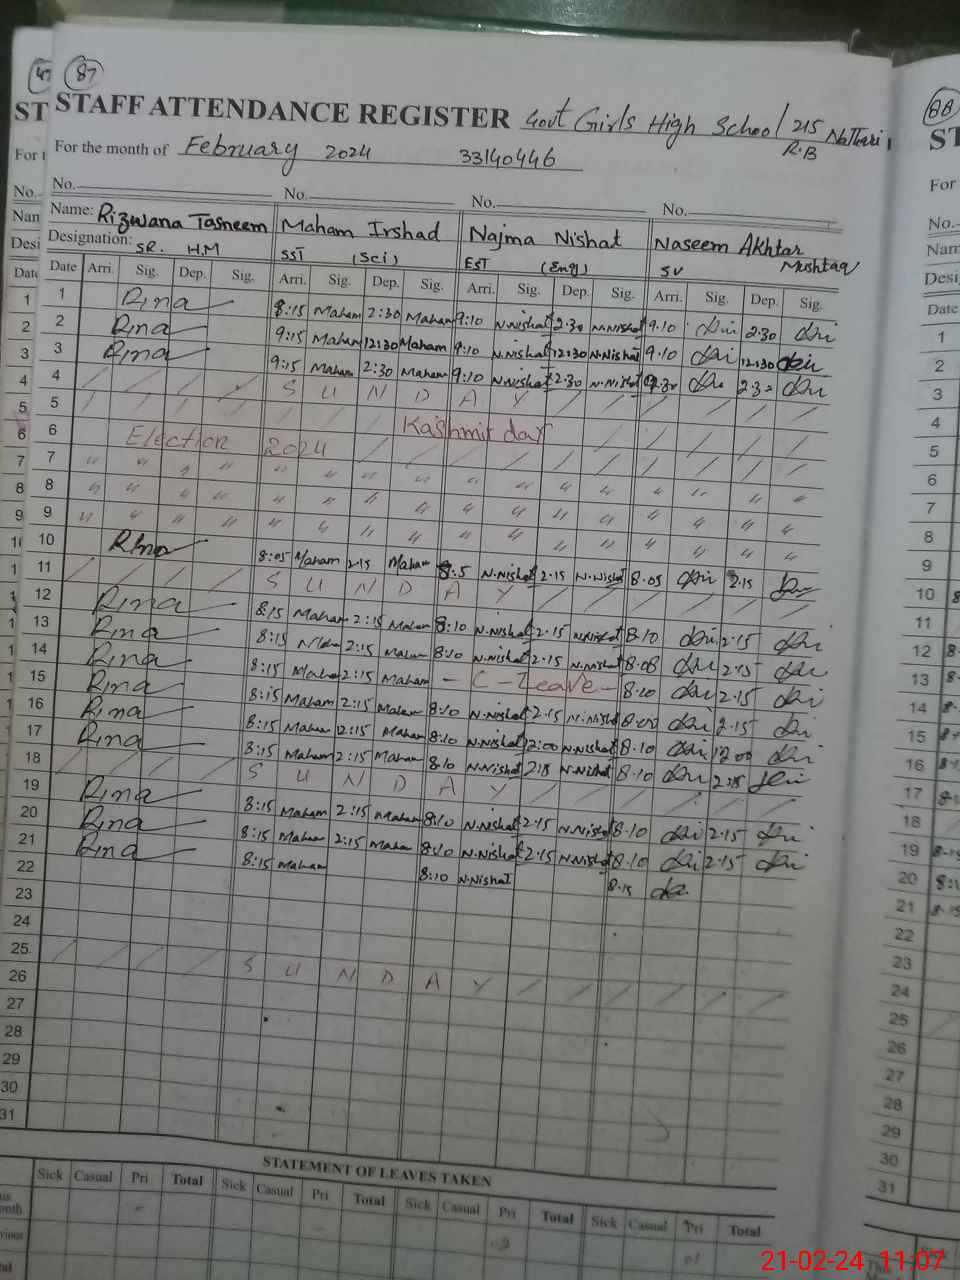 87
STAFF ATTENDANCE REGISTER Govt Girls High School 215 R.B
For the month of February 2024 33140446
No. No. No. No.
Name: Rizwana Tasneem Maham Irshad Najma Nishat Naseem Akhtar Mushtaq
Designation: SR. H.M SST (Sci) EST (Eng) SV
Date Arri. Sig. Dep. Sig. Arri. Sig. Dep. Sig. Arri. Sig. Dep. Sig. Arri. Sig. Dep. Sig.
1 Rina 8:15 Maham 2:30 Maham 9:10 N.Nishat 2.30 N.Nishat 9.10 2.30
2 Rina 9:15 Maham 12:30 Maham 9:10 N.Nishat 12:30 N.Nishat 9.10 12.30
3 Rina 9:15 Maham 2:30 Maham 9:10 N.Nishat 2.30 N.Nishat
4 S U N D A Y
5 Kashmir day
6 Election 2024
7 " " " " " " " " " " " " " " " "
8 " " " " " " " " " " " " " " " "
9 " " " " " " " " " " " " " " " "
10 Rina 8:05 Maham 2.15 Maham 8:5 N.Nishat 2.15 N.Nishat 8.05 2.15
11 S U N D A Y
12 Rina 8:15 Maham 2:15 Maham 8:10 N.Nishat 2.15 N.Nishat 8.10 2.15
13 Rina 8:15 2:15 Maham 8:10 N.Nishat 2.15 N.Nishat 8.08 2.15
14 Rina 8:15 Maham 2:15 Maham - C - Leave - 8.10 2.15
15 Rina 8:15 Maham 2:15 Maham 8:10 N.Nishat 2.15 N.Nishat 2.15
16 Rina 8:15 Maham 12:15 Maham 8:10 N.Nishat 12:00 N.Nishat 8.10 12.00
17 Rina 8:15 Maham 2:15 Maham 8:10 N.Nishat 2.15 N.Nishat 8.10 2.15
18 S U N D A Y
19 Rina 8:15 Maham 2:15 Maham 8:10 N.Nishat 2.15 N.Nishat 8.10 2.15
20 Rina 8:15 Maham 2:15 Maham 8:10 N.Nishat 2.15 N.Nishat 8.10 2.15
21 Rina 8:15 Maham 8:10 N.Nishat 8.15
22
23
24
25 S U N D A Y
26
27
28
29
30
31
STATEMENT OF LEAVES TAKEN
Sick Casual Pri Total Sick Casual Pri Total Sick Casual Pri Total Sick Casual Pri Total
88
21-02-24 11:07